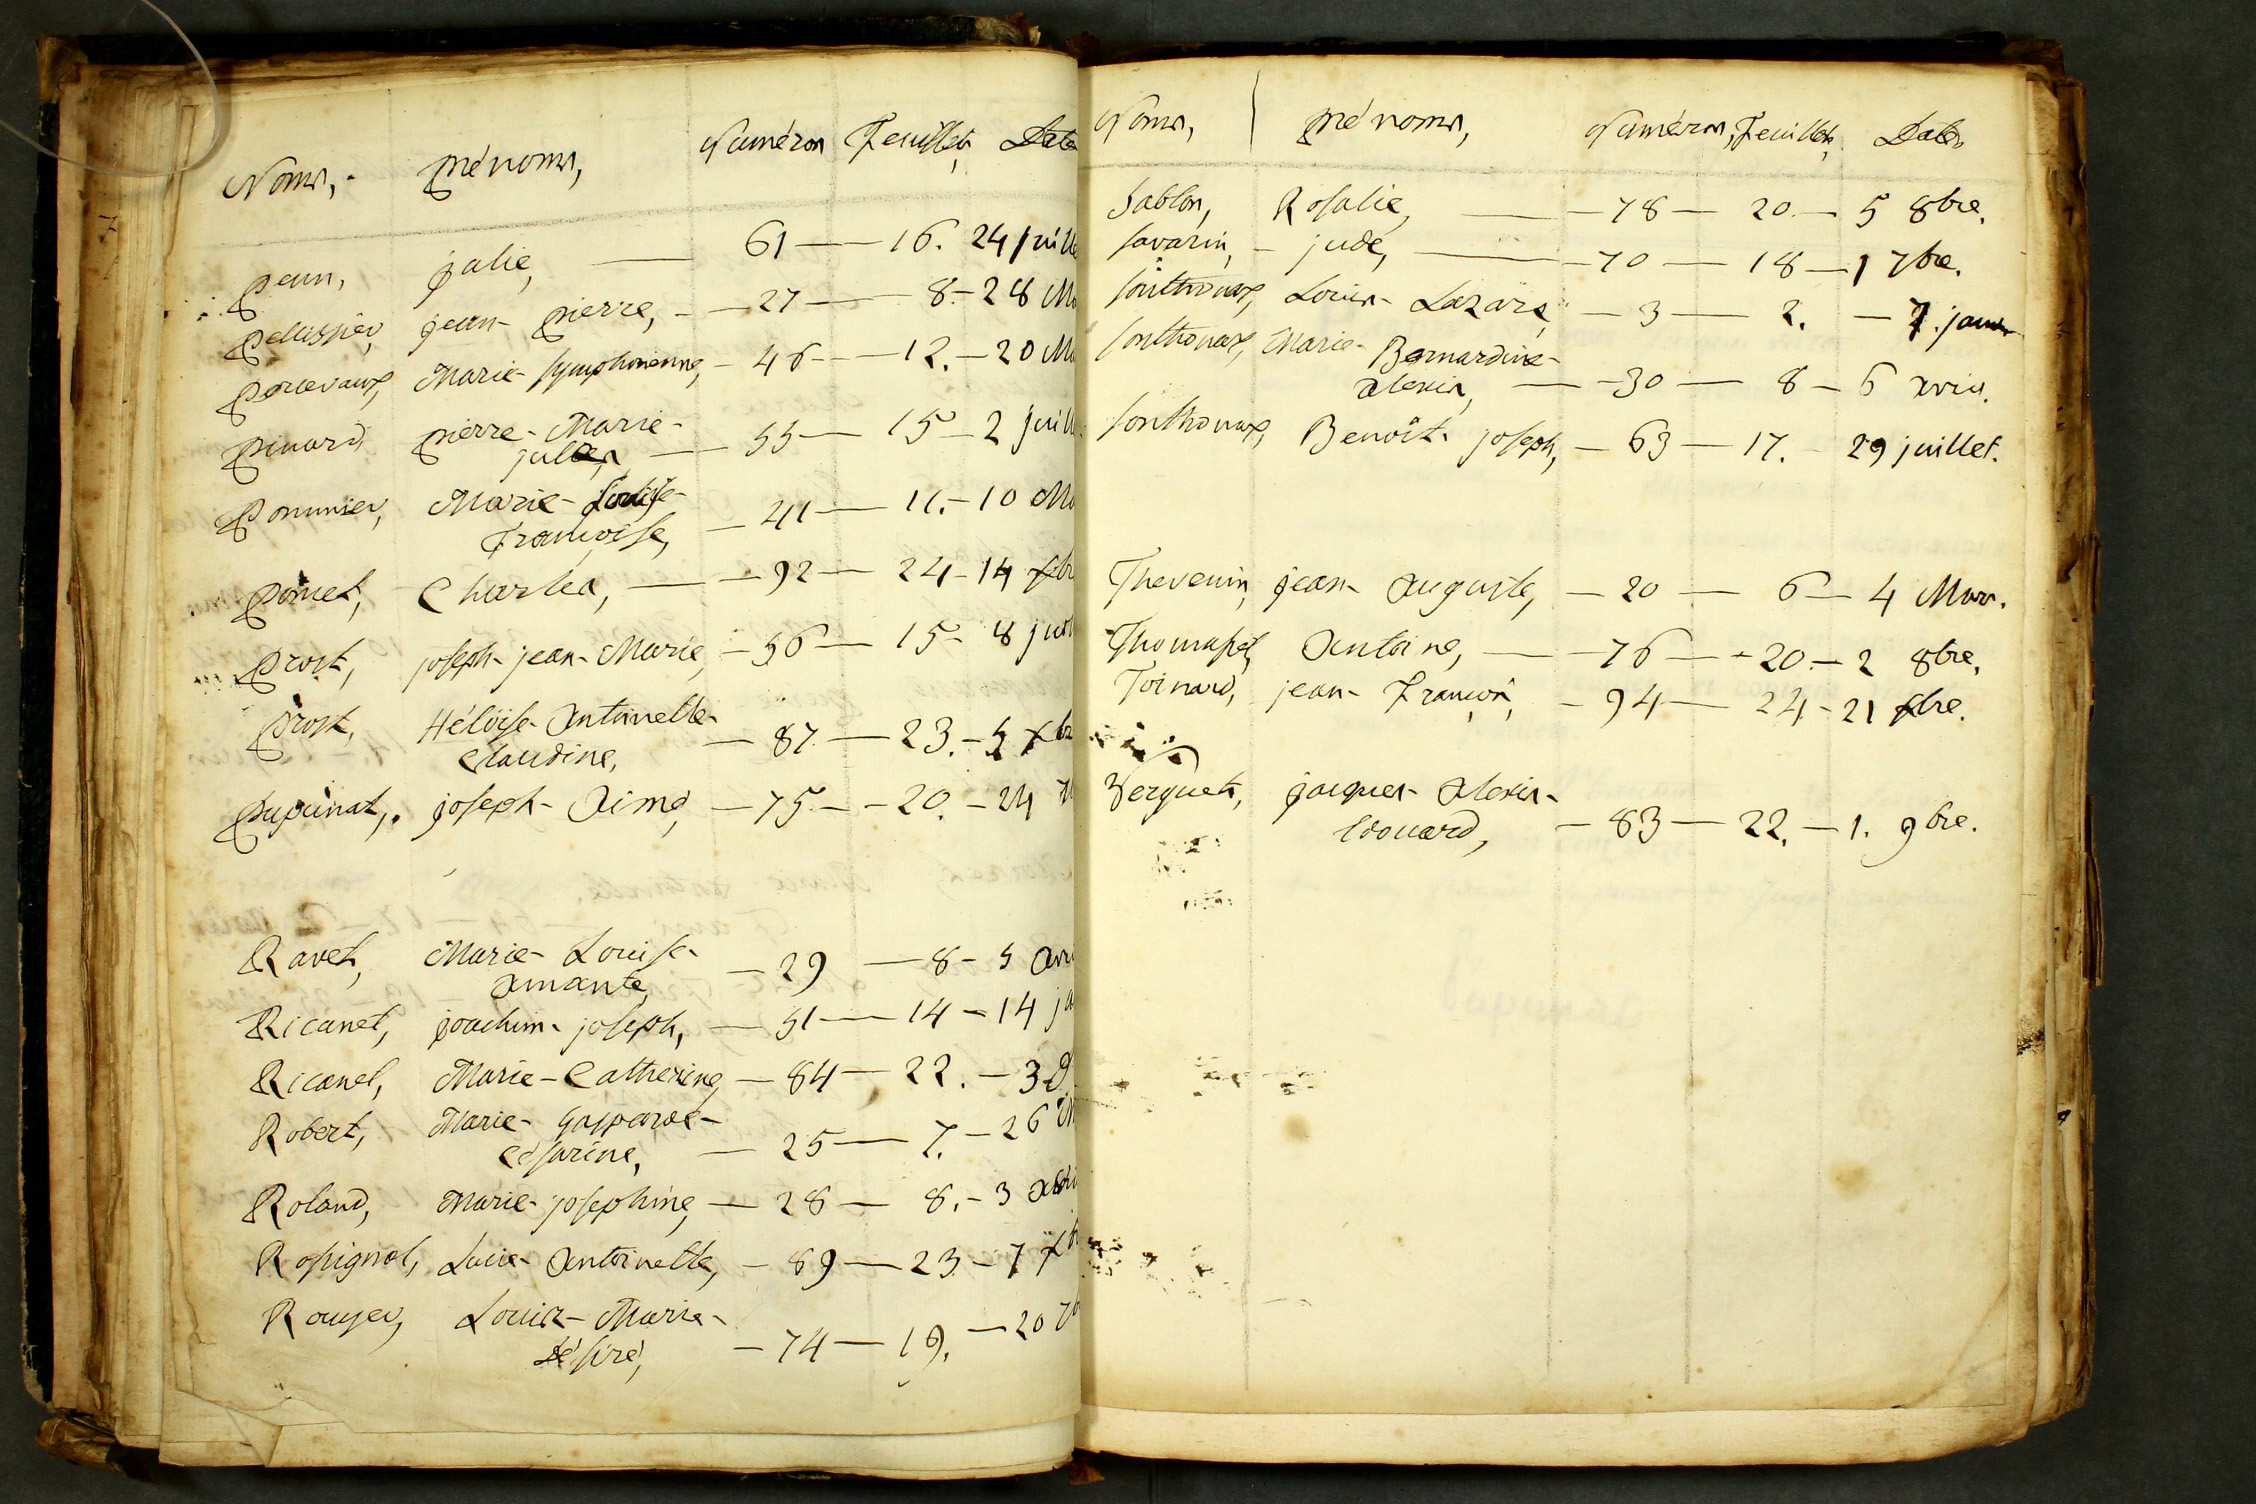 Noms, Prénoms, Numéros Feuillets, Dates
Penn, Julie, — 61 — 16. 24 juille
Pellissier, jean-Pierre, — 27 — 8. — 28 Ma
Perrevaux, Marie-symphorienne, — 46 — 12. — 20 Ma
Pinard, Pierre-Marie-
jules, — 55 — 15 — 2 juill
Pommier, Marie-Louise-
Françoise, — 41 — 11. — 10 Ma
Poncet, Charles, — 92 — 24 — 14 xbr
Prost, joseph-jean-Marie, — 56 — 15 — 8 juil
Prost, Héloïse-Antoinette-
Claudine, — 87 — 23. — 5 xbr
Pupunat, joseph-Aimé, — 75 — 20. — 24 7
Ravet, Marie-Louise-
Amante, — 29 — 8 — 5 avri
Ricanet, joachim-joseph, — 51 — 14 — 14 ju
Ricanet, Marie-Catherine, — 84 — 22. — 3 9
Robert, Marie-Gasparde-
Césarine, — 25 — 7. — 26 M
Roland, Marie-josephine, — 28 — 8. — 3 avri
Rossignol, Lucie-Antoinette, — 89 — 23 — 7 xb
Rouyer, Louis-Marie-
désiré, — 74 — 19. — 20 7b
Noms, Prénoms, Numéros, Feuillets, Dates
Sablon, Rosalie, — 78 — 20. — 5 8bre.
Savarin, jude, — 70 — 18 — 1 7bre.
Sonthonax, Louis-Lazare, — 3 — 2. — 7. janv
Sonthonax, Marie-Bernardine-
Alexis, — 30 — 8 — 6 avril.
Sonthonax, Benoît-joseph, — 63 — 17. 29 juillet.
Thevenin, jean-Auguste, — 20 — 6 — 4 Mars.
Thomasset, Antoine, — 76 — 20. — 2 8bre.
Toinard, jean-François, — 94 — 24 — 21 xbre.
Verguet, jacques-Alexis-
Edouard, — 83 — 22. — 1. 9bre.